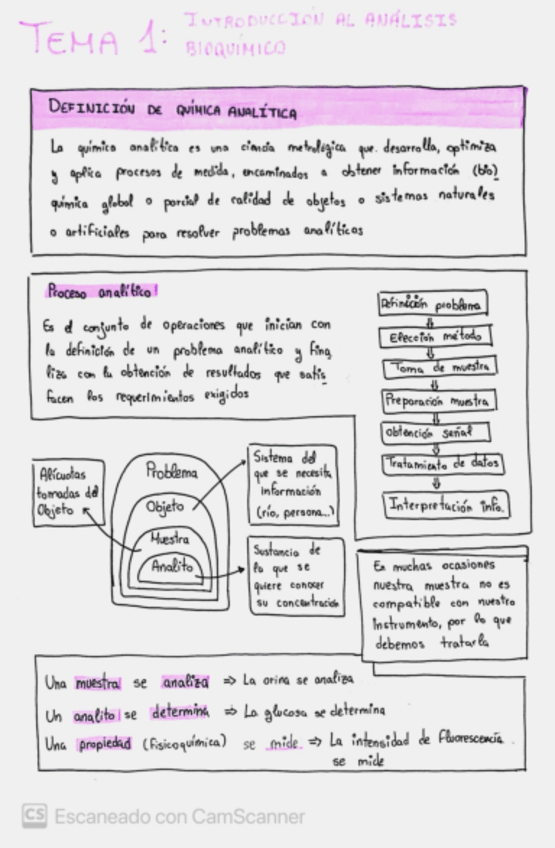 TEMA 1: INTRODUCCIÓN AL ANÁLISIS
BIOQUÍMICO
DEFINICIÓN DE QUÍMICA ANALÍTICA
La química analítica es una ciencia metrológica que desarrolla, optimiza
y aplica procesos de medida, encaminados a obtener información (bio)
química global o parcial de calidad de objetos o sistemas naturales
o artificiales para resolver problemas analíticos
Proceso analítico
Es el conjunto de operaciones que inician con
la definición de un problema analítico y fina
liza con la obtención de resultados que satis
facen los requerimientos exigidos
Definición problema
Elección método
Toma de muestra
Preparación muestra
Obtención señal
Tratamiento de datos
Interpretación info.
Alícuotas
tomadas del
Objeto
Problema
Objeto
Muestra
Analito
Sistema del
que se necesita
información
(río, persona...)
Sustancia de
la que se
quiere conocer
su concentración
En muchas ocasiones
nuestra muestra no es
compatible con nuestro
instrumento, por lo que
debemos tratarla
Una muestra se analiza ⇒ La orina se analiza
Un analito se determina ⇒ La glucosa se determina
Una propiedad (fisicoquímica) se mide ⇒ La intensidad de fluorescencia
se mide
CS Escaneado con CamScanner